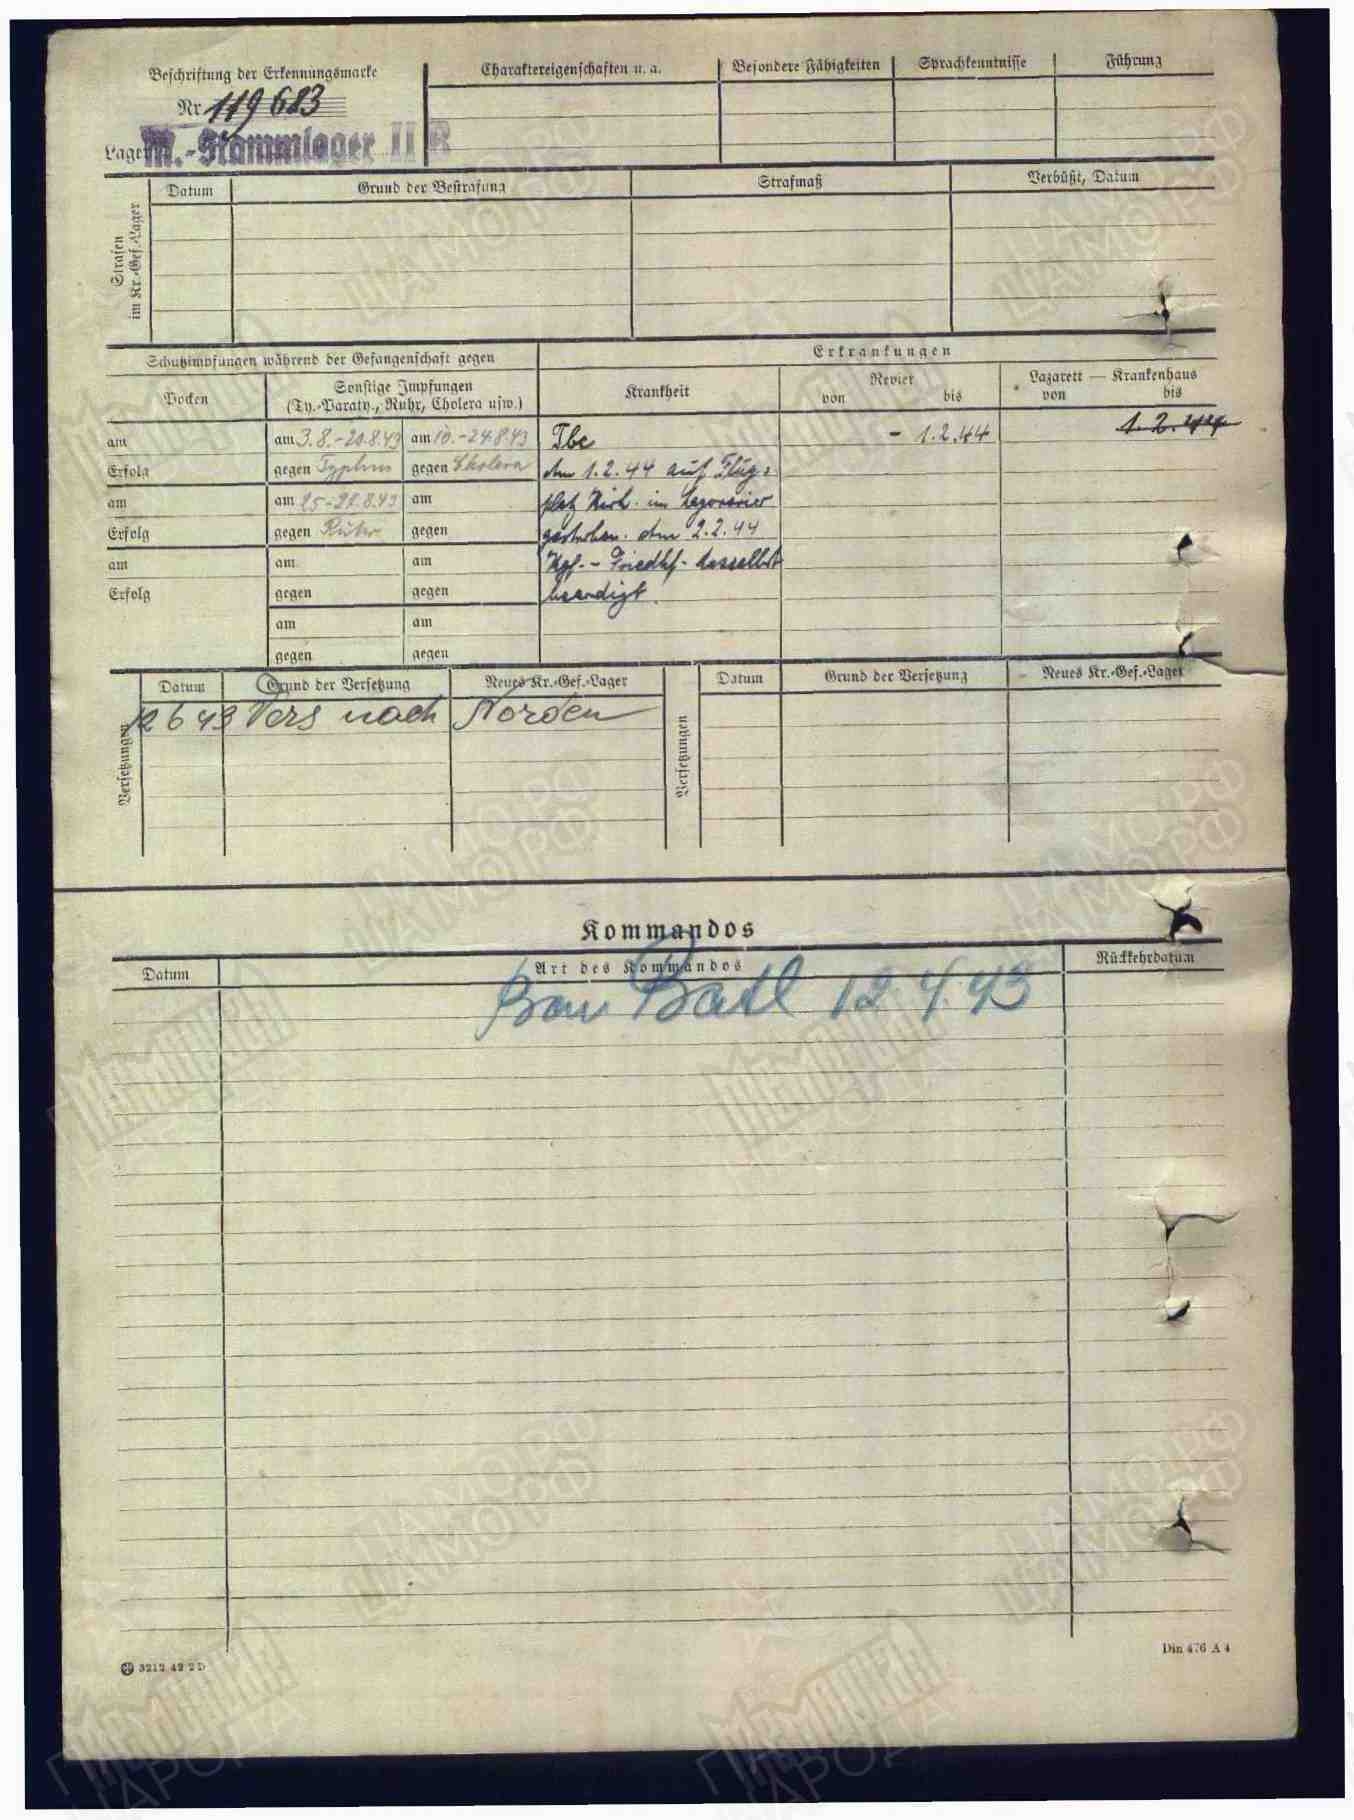 Beschriftung der Erkennungsmarke
Nr 119 683
Lager M.-Stammlager II B
Charaktereigenschaften u. a.
Besondere Fähigkeiten
Sprachkenntnisse
Führung
Strafen im Kr.-Gef.-Lager
Datum
Grund der Bestrafung
Strafmaß
Verbüßt, Datum
Schutzimpfungen während der Gefangenschaft gegen
Erkrankungen
Pocken
Sonstige Impfungen
(Ty.-Paraty., Ruhr, Cholera usw.)
Krankheit
Revier
von bis
Lazarett — Krankenhaus
von bis
am am 3.8.-20.8.43 am 10.-24.8.43 Tbc - 1.2.44 1.2.
Erfolg gegen Typhus gegen Cholera Am 1.2.44 auf Flug=
am am 25-28.8.43 am platz im Lagerrevier
Erfolg gegen Ruhr gegen gestorben. Am 2.2.44
am am am Kgf.- Friedhf. daselbst
Erfolg gegen gegen beerdigt.
am am
gegen gegen
Versetzungen
Datum Grund der Versetzung Neues Kr.-Gef.-Lager
12 6 43 Vers nach Norden
Versetzungen
Datum Grund der Versetzung Neues Kr.-Gef.-Lager
Kommandos
Datum Art des Kommandos Rückkehrdatum
Bau Batl 12.4.43
3212 42 2 D
Din 476 A 4
ЦАМО РФ
МЕМОРИАЛ
НАРОДА